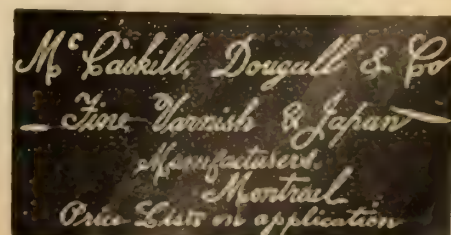 Mc Caskill, Dougall & Co
Fine Varnish & Japan
Manufacturers
Montreal
Price Lists on application